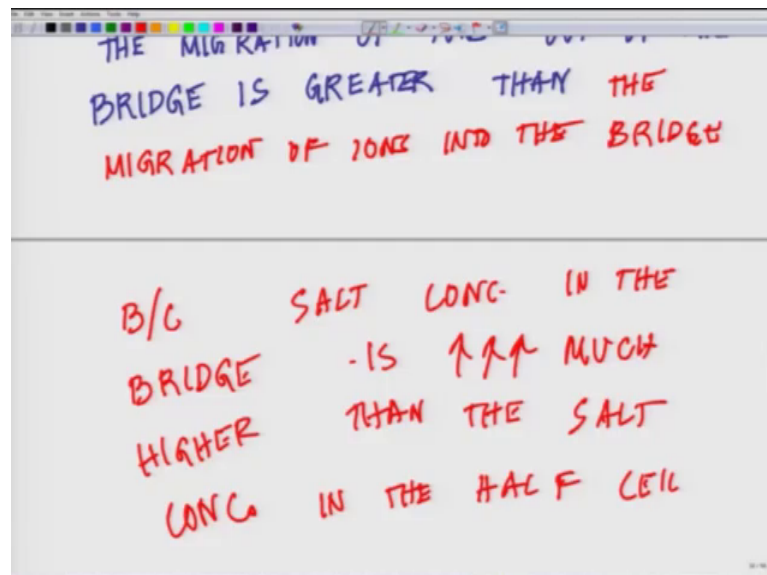 THE MIGRATION OF IONS OUT OF THE
BRIDGE IS GREATER THAN THE
MIGRATION OF IONS INTO THE BRIDGE
B/C SALT CONC. IN THE
BRIDGE IS ↑↑↑ MUCH
HIGHER THAN THE SALT
CONC. IN THE HALF CELL